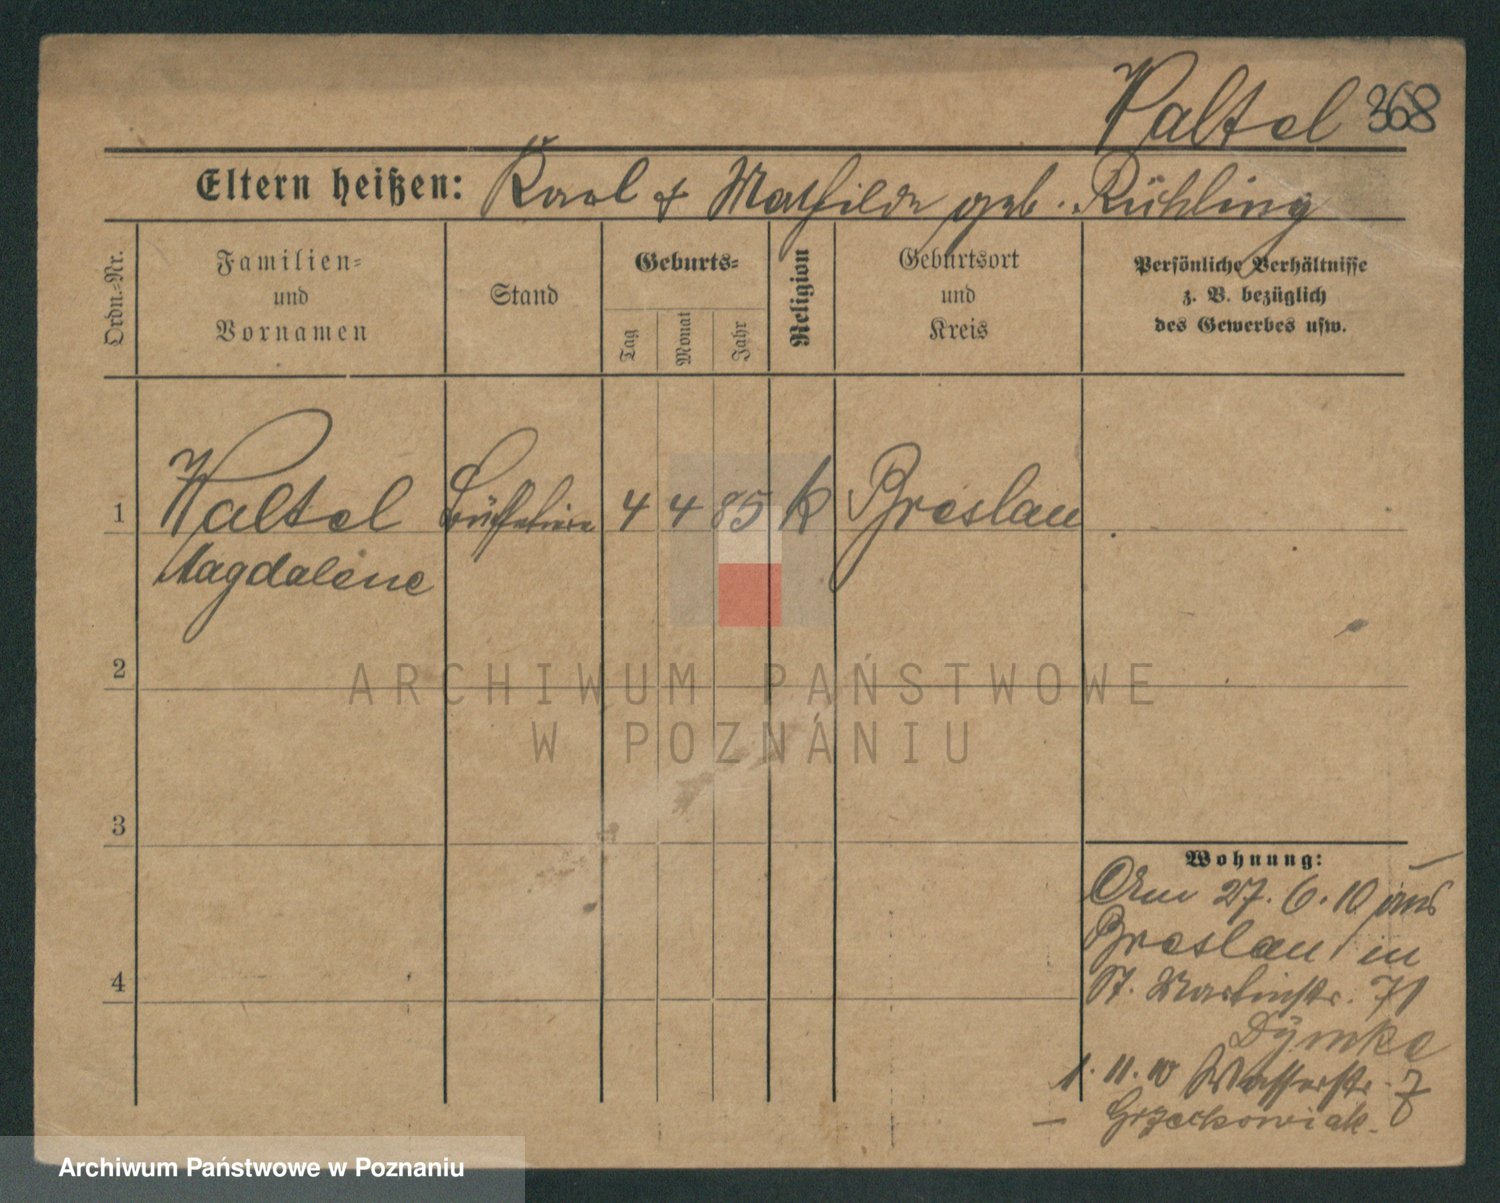 Waltel 368
Eltern heißen: Karl & Mathilde geb. Rühling
Ordn.-Nr.
Familien-
und
Vornamen
Stand
Geburts-
Tag
Monat
Jahr
Religion
Geburtsort
und
Kreis
Persönliche Verhältnisse
z. B. bezüglich
des Gewerbes usw.
1 Waltel 4 4 85 k Breslau
Magdalene
2
3
4
Wohnung:
Am 27.6.10 aus
Breslau in
St. Martinstr. 71
Dymke
1.11.10 Wasserstr. 7
– Grzeckowiak.
ARCHIWUM PAŃSTWOWE
W POZNANIU
Archiwum Państwowe w Poznaniu